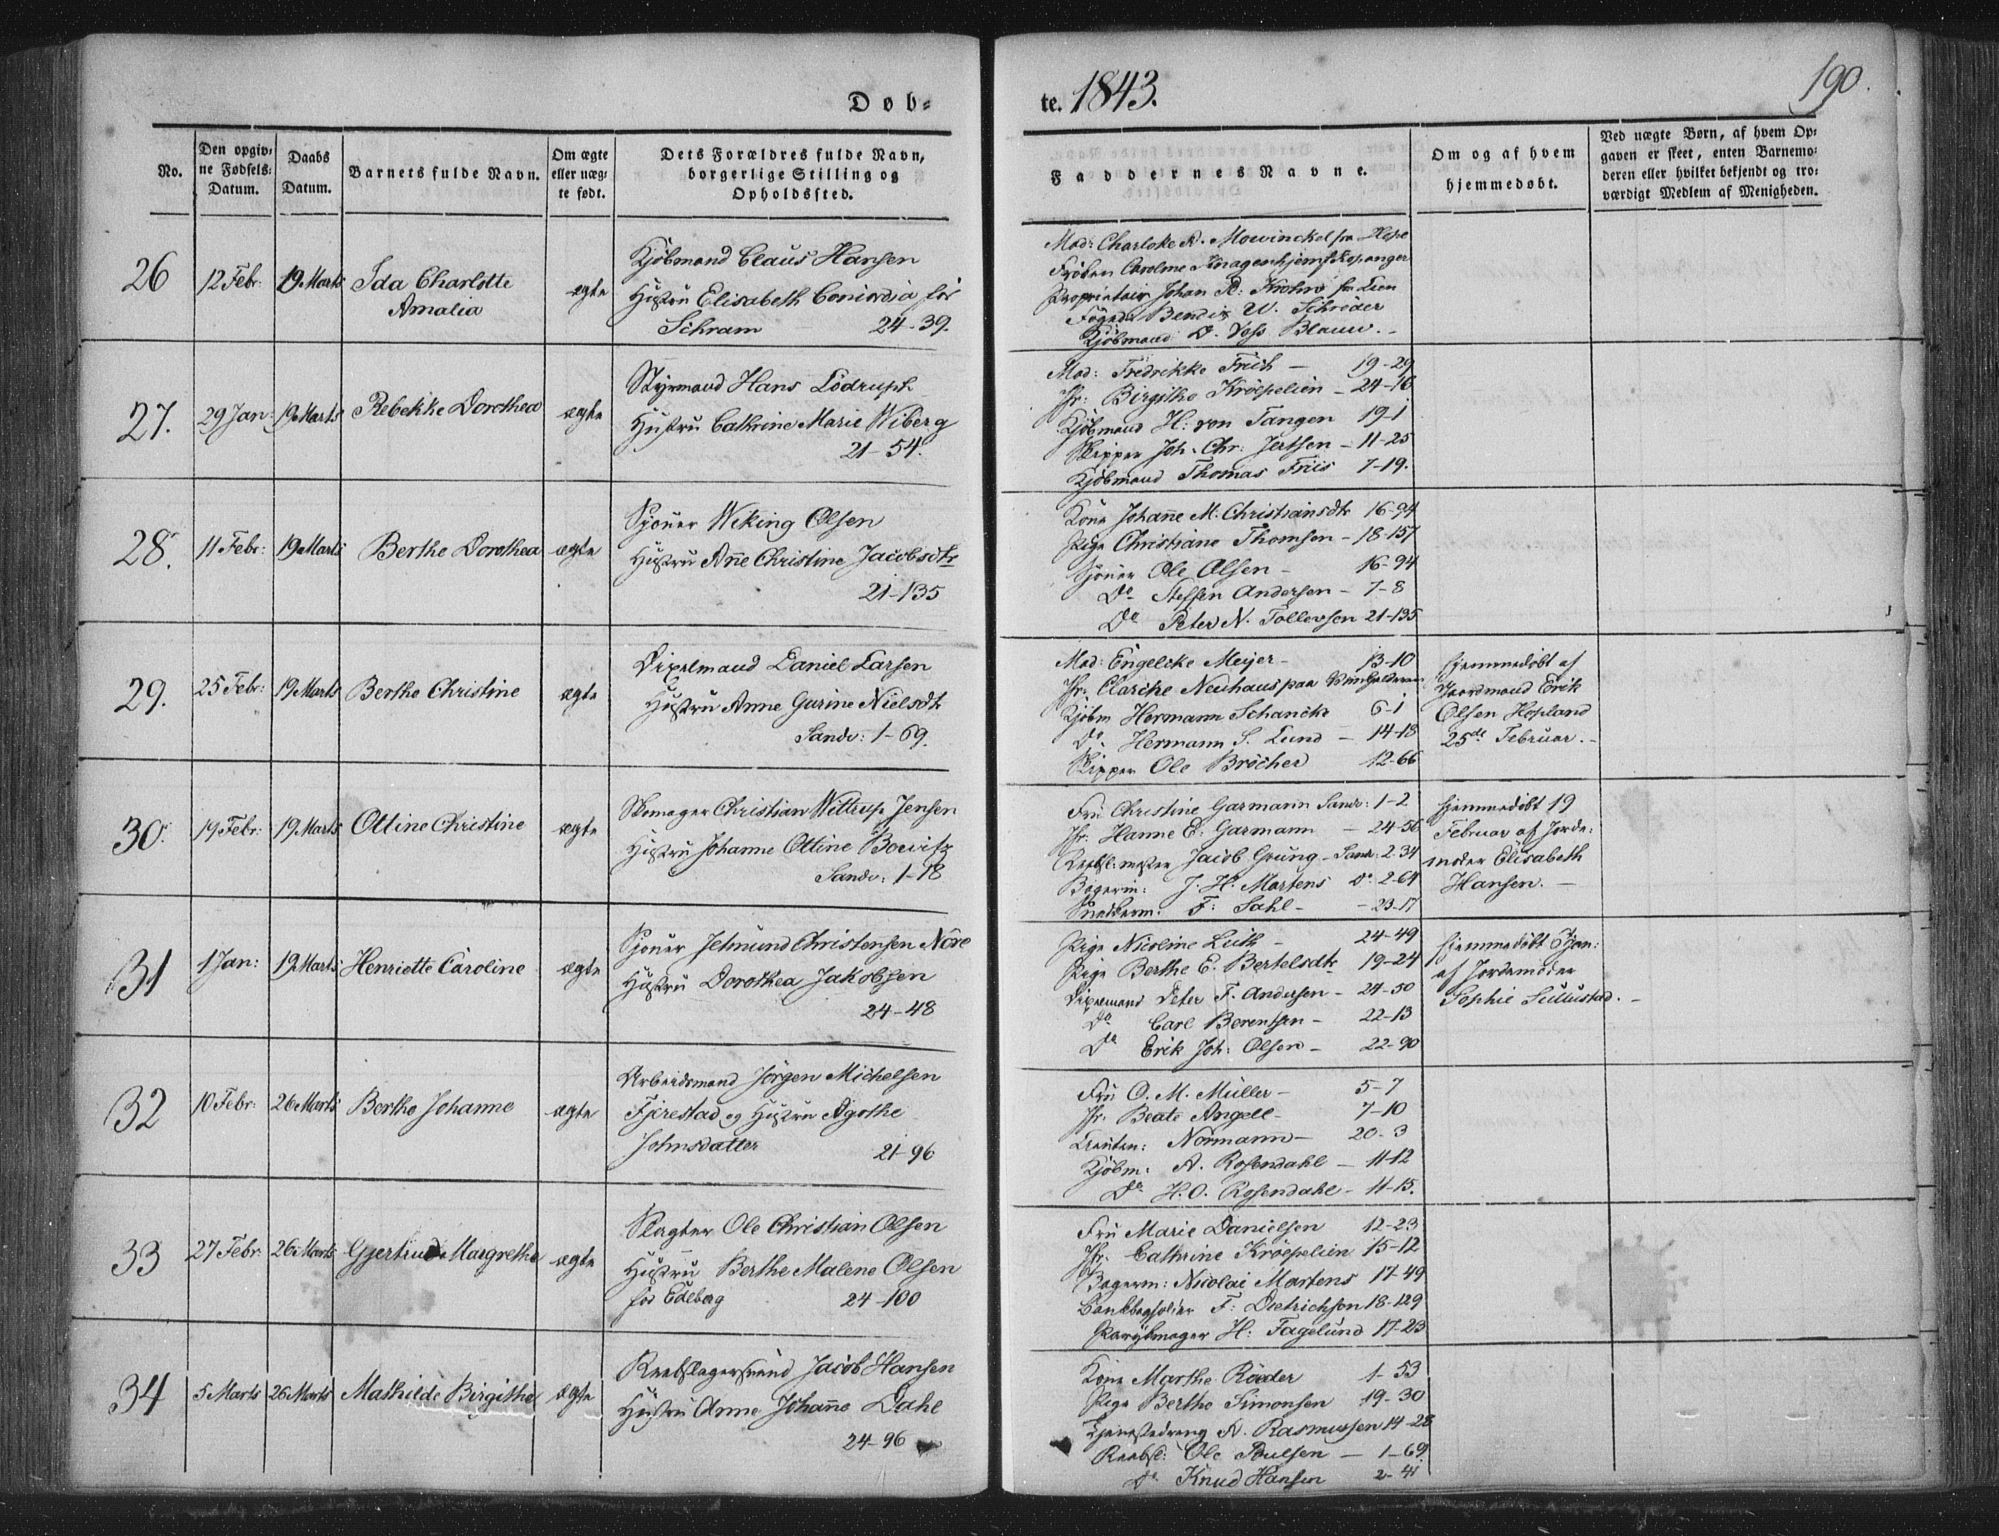 Døb-
te. 1843.
190.
No.
Den opgiv-
ne Fødsels-
Datum.
Daabs
Datum.
Barnets fulde Navn.
Om ægte
eller uæg-
te født.
Dets Forældres fulde Navn,
borgerlige Stilling og
Opholdssted.
Faddernes Navne.
Om og af hvem
hjemmedøbt.
Ved uægte Børn, af hvem Op-
gaven er skeet, enten Barnemo-
deren eller hvilket bekjendt og tro-
værdigt Medlem af Menigheden.
26
12 Febr:
19 Marts
Ida Charlotte
Amalia
ægte
Kjöbmand Claus Hansen
Hustru Elisabeth Concordia för
Schram 24-39.
Mad: Charlotte A. Mowinckel fra
Fröken Caroline
Proprietair Johan R: Krohn fra Lien
Foged Bendix W. Schröder
Kjöbmand D. Voss Blauw.-
27.
29 Jan:
19 Marts
Rebekke Dorothea
ægte
Styrmand Hans Lödrup
Hustru Cathrine Marie Wiberg
21-54.
Mad: Fredrikke Frich - 19-29
Jfr: Birgithe Kröepelien - 24-16
Kjöbmand H: von Tangen 19-1
Skipper Joh. Chr: Jertsen - 11-25
Kjöbmand Thomas Friis 7-19.
28.
11 Febr:
19 Marts
Berthe Dorothea
ægte
Sjouer Wiking Olsen
Hustru Ane Christine Jacobsdtr
21-135
Kone Johane M. Christiansdtr 16-94
Pige Christiane Thomsen - 18-157
Sjouer Ole Olsen - 16-94
Do Steffen Andersen - 7-8
Do Peter N. Tollevsen 21-135
29.
25 Febr:
19 Marts
Berthe Christine
ægte
Dixelmand Daniel Larsen
Hustru Anne Gurine Nielsdtr
Sandv: 1-69.
Mad: Engelcke Meijer - 13-10
Jfr: Clarche Neuhaus paa
Kjöbm Hermann Schancke 6-1
Do Hermann S. Lund - 14-18
Skipper Ole Bröcher 12-66
Hjemmedöbt af
Gaardmand Erik
Olsen Hopland
25de Februar.-
30.
19 Febr:
19 Marts
Ottine Christine
ægte
Skomager Christian Wittrup Jensen
Hustru Johanne Ottine Boevitz
Sandv: 1-78
Fru Christine Garmann Sandv: 1-2
Jfr: Hanne E: Garmann - 24-56
Rebsl:mester Jacob Grung - Sandv: 2-34
Bagerm: J. H. Martens Do. 2-64
Snedkerm: F: Sahl - 23-17
Hjemmedöbt 19
Februar af Jorde-
moder Elisabeth
Hansen.-
31
1 Jan:
19 Marts
Henriette Caroline
ægte
Sjouer Jetmund Christensen Nöre
Hustru Dorothea Jakobsen
24-48
Pige Nicoline Luth - 24-49
Pige Berthe E. Bertelsdtr 19-24
Dixelmand Peter F. Andersen - 24-50
Do Carl Berentsen - 22-13
Do Erik Joh: Olsen - 22-90
Hjemmedöbt 6 Jan:
af Jordemoder
Sophie Sullustad.-
32
10 Febr:
26 Marts
Berthe Johanne
ægte
Arbeidsmand Jörgen Michelsen
Fjirestad og Hustru Agothe
Johnsdatter 21-96
Fru O. M. Müller - 5-7
Jfr: Beate Angell - 7-10
Leuten: Normann - 20-3
Kjöbm: A. Rosendahl - 11-12
Do H. O. Rosendahl - 11-15.
33
27 Febr:
26 Marts
Gjertrud Margrethe
ægte
Slagter Ole Christian Olsen
Hustru Berthe Malene Olsen
föd Edeberg 24-100
Fru Marie Danielsen 12-23
Jfr: Cathrine Kröepelien 15-12
Bagerm: Nicolai Martens 17-49
F: Dietrichson 18-129
H: Fagelund 17-23
34
5 Marts
26 Marts
Mathilde Birgithe
ægte
Rebslagersvend Jacob Hansen
Hustru Anne Johane Dahl
24-96
Kone Marthe Röeder 1-53
Pige Berthe Simonsen 19-30
Tjenestedreng A. Rasmussen 14-28
Rebsl: Ole Poulsen - 1-69
Do Knud Hansen 2-41